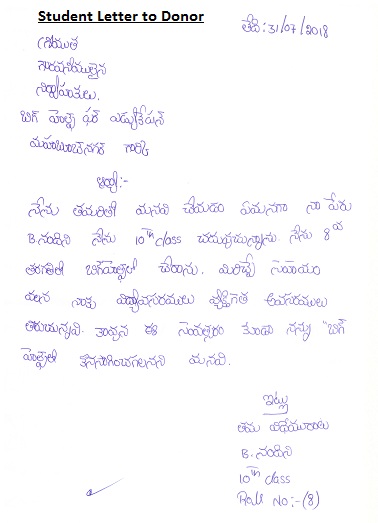 Student Letter to Donor
తేది: 31/07/2018
శ్రీయుత
గౌరవనీయులైన
నిర్వాహకులు.
బిగ్ హెల్ప్ ఫర్ ఎడ్యుకేషన్
మహబూబ్‌నగర్ గార్కి
ఆర్యా:-
నేను తమరితో మనవి చేయడం ఏమనగా నా పేరు
B.నందిని నేను 10th class చదువుచున్నాను. నేను 8వ
తరగతిలో బిగ్‌హెల్ప్‌లో చేరాను. మీరిచ్చే సహాయం
వలన నాకు విద్యావసరములు వ్యక్తిగత అవసరములు
తీరుచున్నవి. కావున ఈ సంవత్సరం కూడా నన్ను "బిగ్
హెల్ప్‌లో కొనసాగించగలనని మనవి.
ఇట్లు
తమ విధేయురాలు
B. నందిని
10th class
Roll No:-(8)